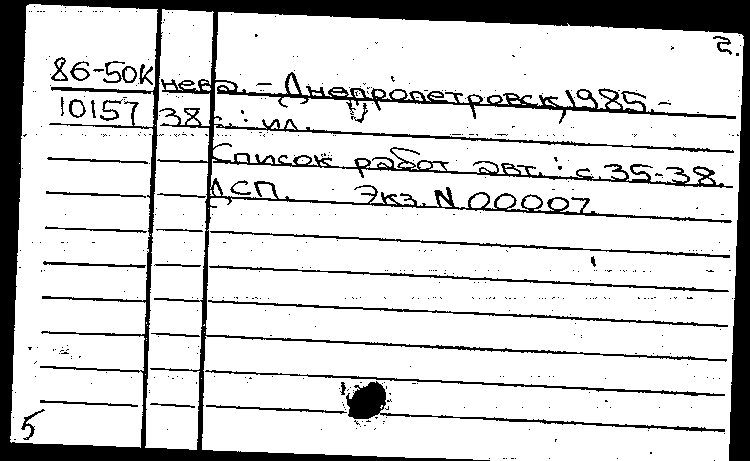 2.
86-50К нева. – Днепропетровск, 1985.–
10157 38 с.: ил.
Список работ авт.: с. 35-38.
ДСП. Экз. N 00007.
5